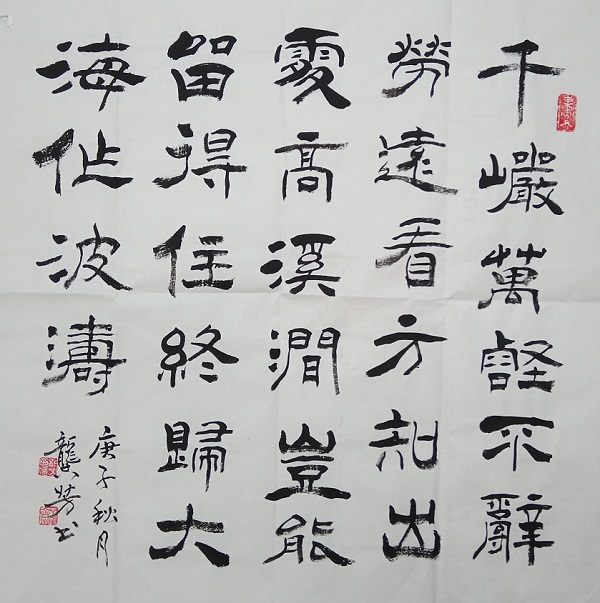 千巗萬壑不辭
勞遠看方知出
處高溪澗豈能
留得住終歸大
海作波濤
庚子秋月
龔书